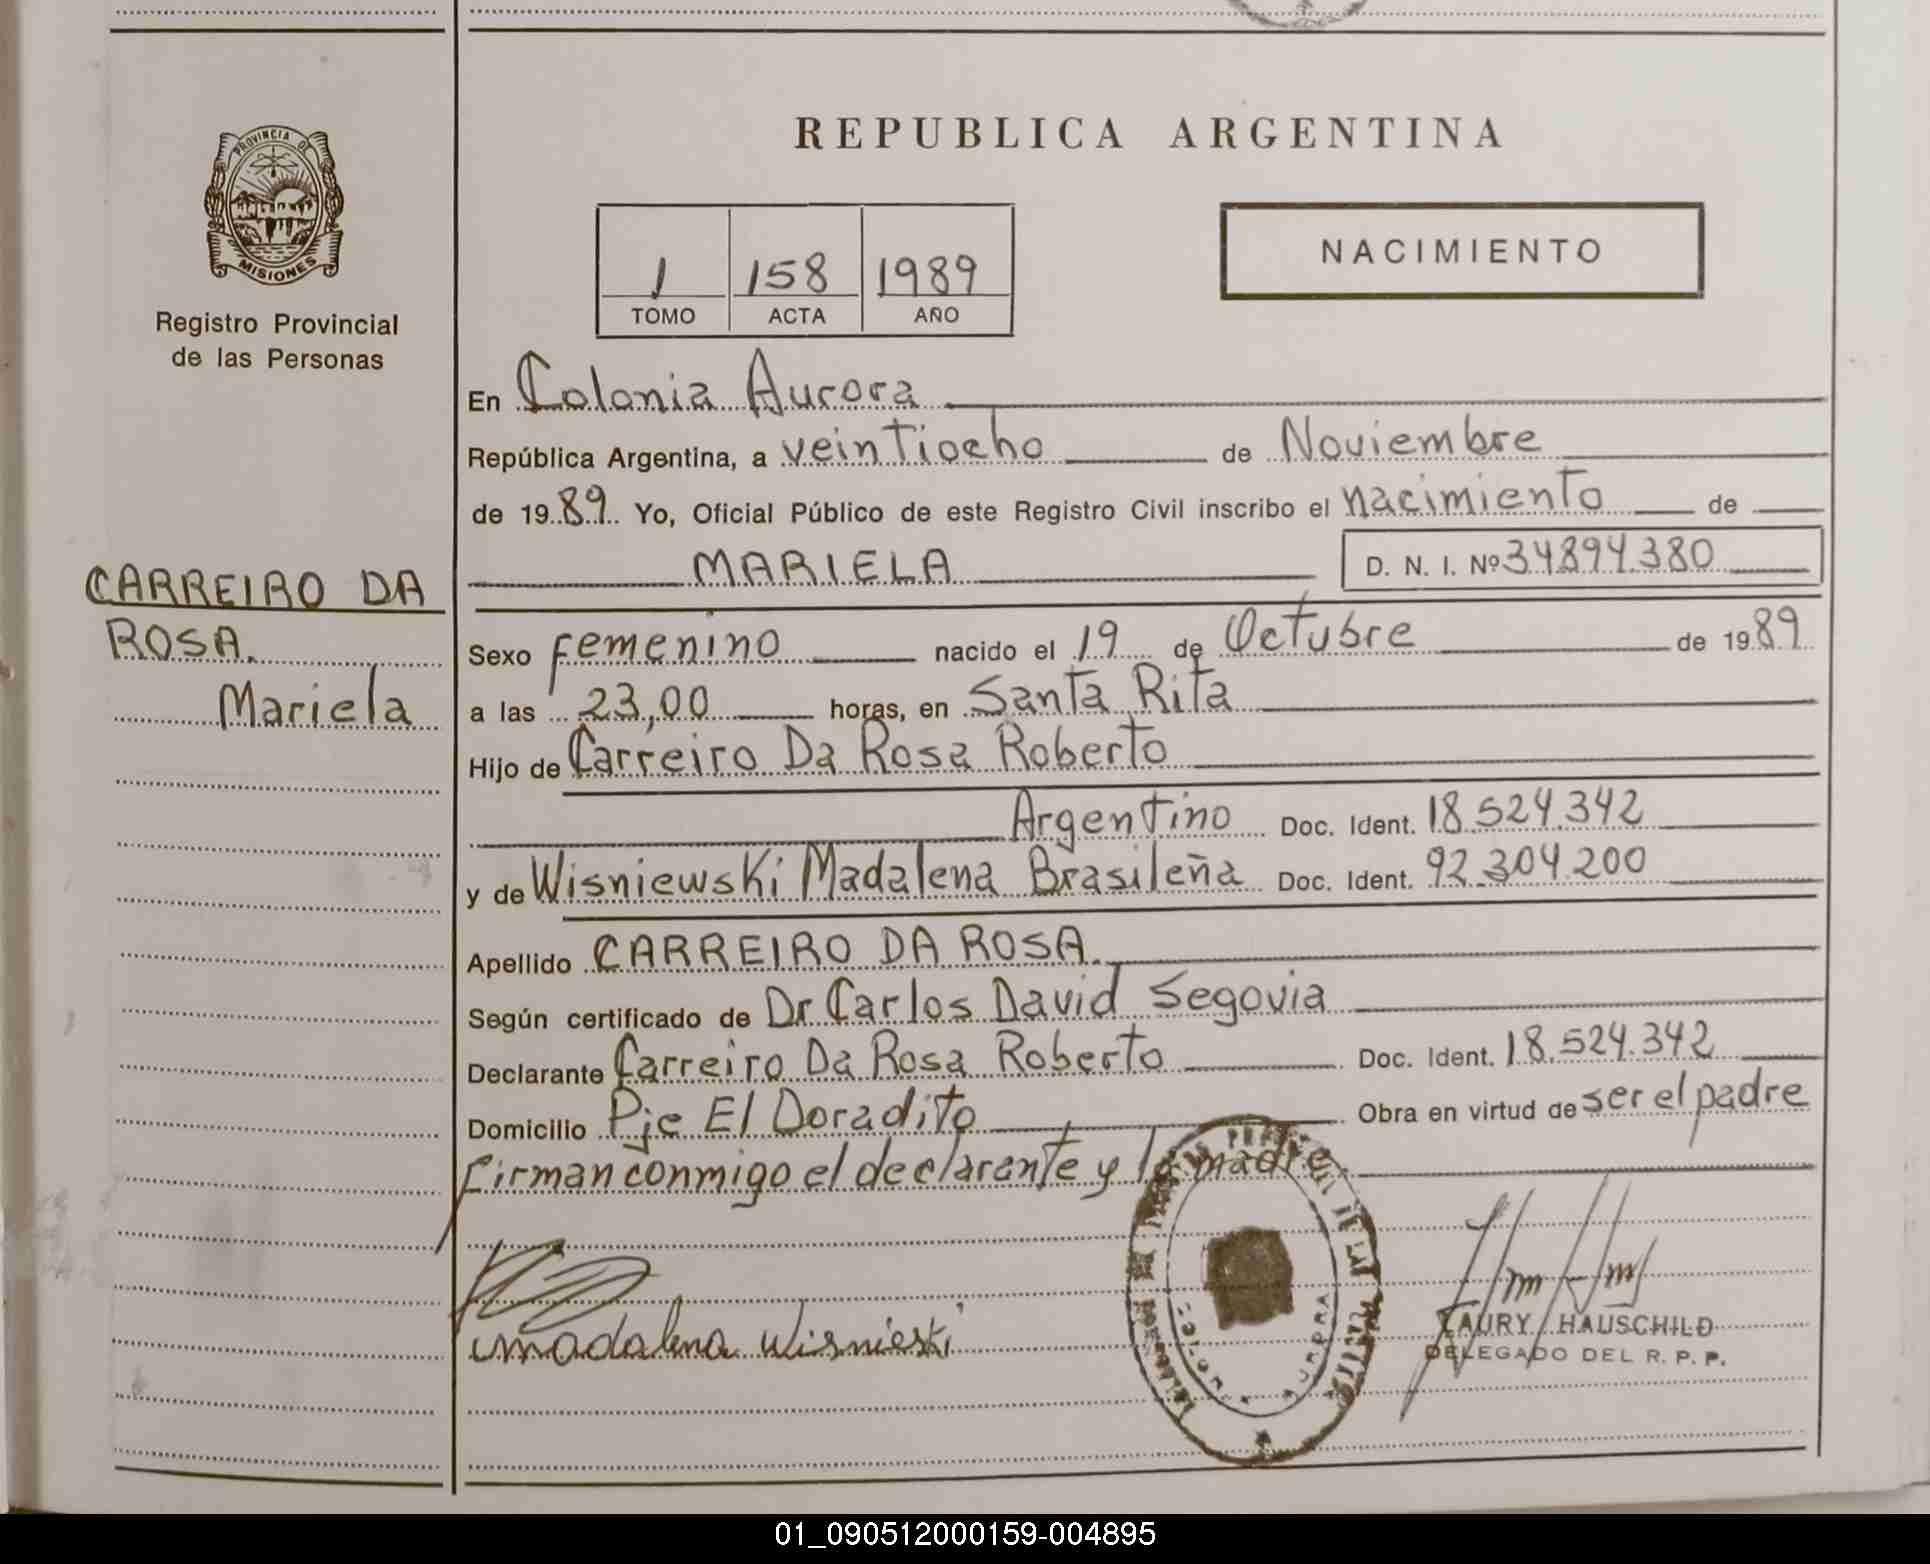 PROVINCIA DE
MISIONES
Registro Provincial
de las Personas
CARREIRO DA
ROSA.
Mariela
REPUBLICA ARGENTINA
1 158 1989
TOMO ACTA AÑO
NACIMIENTO
En Colonia Aurora
República Argentina, a veintiocho de Noviembre
de 1989. Yo, Oficial Público de este Registro Civil inscribo el nacimiento de
MARIELA D. N. I. Nº 34894.380
Sexo femenino nacido el 19 de Octubre de 1989
a las 23,00 horas, en Santa Rita
Hijo de Carreiro Da Rosa Roberto
Argentino Doc. Ident. 18.524.342
y de Wisniewski Madalena Brasileña Doc. Ident. 92.304.200
Apellido CARREIRO DA ROSA.
Según certificado de Dr Carlos David Segovia
Declarante Carreiro Da Rosa Roberto Doc. Ident. 18.524.342
Domicilio Pje El Doradito Obra en virtud de ser el padre
firman conmigo el declarante y la madre.
madalena Wisnieski
LAURY HAUSCHILD
DELEGADO DEL R. P. P.
01_090512000159-004895